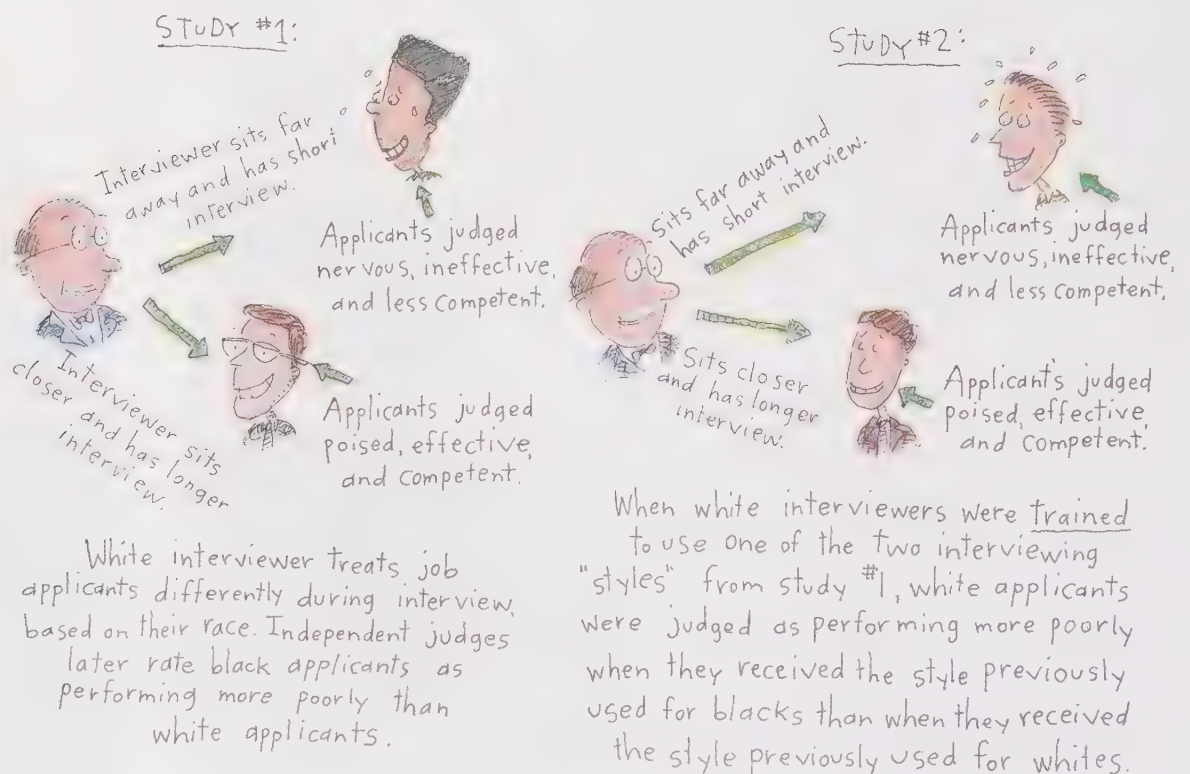 STUDY #1:
Interviewer sits far
away and has short
interview.
Applicants judged
nervous, ineffective,
and less competent.
Interviewer sits
closer and has longer
interview.
Applicants judged
poised, effective,
and competent.
White interviewer treats job
applicants differently during interview,
based on their race. Independent judges
later rate black applicants as
performing more poorly than
white applicants.
STUDY #2:
Sits far away and
has short interview.
Applicants judged
nervous, ineffective,
and less competent.
Sits closer
and has longer
interview.
Applicants judged
poised, effective,
and competent.
When white interviewers were trained
to use one of the two interviewing
"styles" from study #1, white applicants
were judged as performing more poorly
when they received the style previously
used for blacks than when they received
the style previously used for whites.